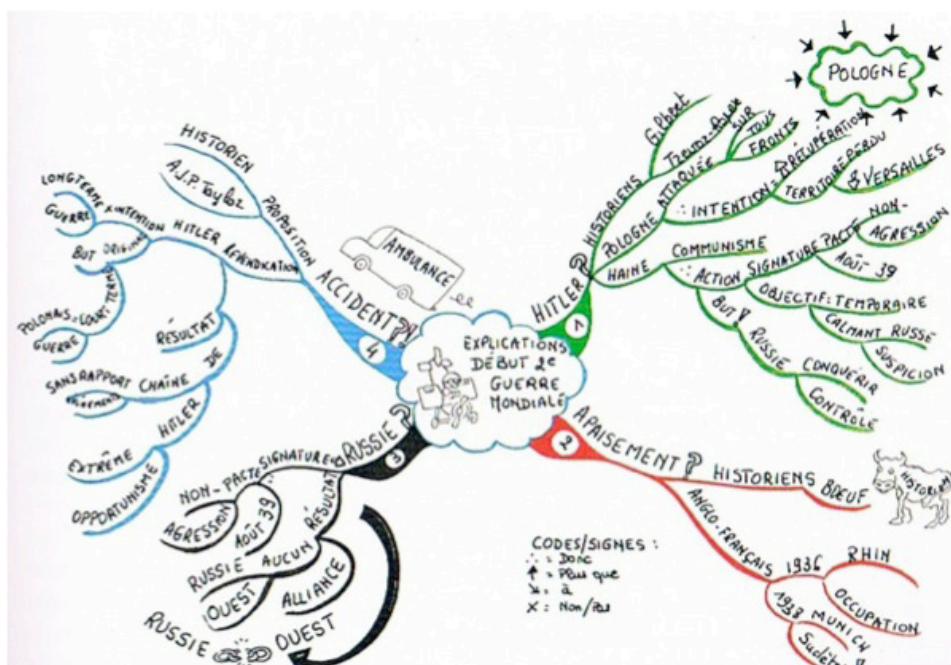 EXPLICATIONS
DÉBUT 2e
GUERRE
MONDIALE
HITLER ?
1
HISTORIENS
Gilbert
POLOGNE ATTAQUÉE
SUR
TOUS
FRONTS
POLOGNE
∴ INTENTION
RÉCUPÉRATION
TERRITOIRE PERDU
VERSAILLES
HAINE
COMMUNISME
∴ ACTION SIGNATURE PACTE NON-
AGRESSION
AOÛT 39
OBJECTIF: TEMPORAIRE
CALMANT RUSSE
SUSPICION
BUT
RUSSIE CONQUÉRIR
CONTRÔLE
APAISEMENT ?
2
HISTORIENS
BOEUF
HISTORIEN
ANGLO-FRANÇAIS
1936
RHIN
OCCUPATION
MUNICH
RUSSIE ?
3
SIGNATURE
NON-PACTE
AGRESSION
AOÛT 39
RÉSULTAT
RUSSIE AUCUN
OUEST
ALLIANCE
RUSSIE
OUEST
ACCIDENT ?
4
AMBULANCE
PROPOSITION
HISTORIEN
A.J.P. Taylor
REVENDICATION
HITLER
X INTENTION
LONG TERME
GUERRE
BUT ORIGINAL
POLONAIS = COURT TERME
GUERRE
RÉSULTAT
CHAÎNE DE
SANS RAPPORT
HITLER
EXTRÊME
OPPORTUNISME
CODES/SIGNES :
∴ : Donc
↑ : Plus que
↘ : à
X : Non/Pas